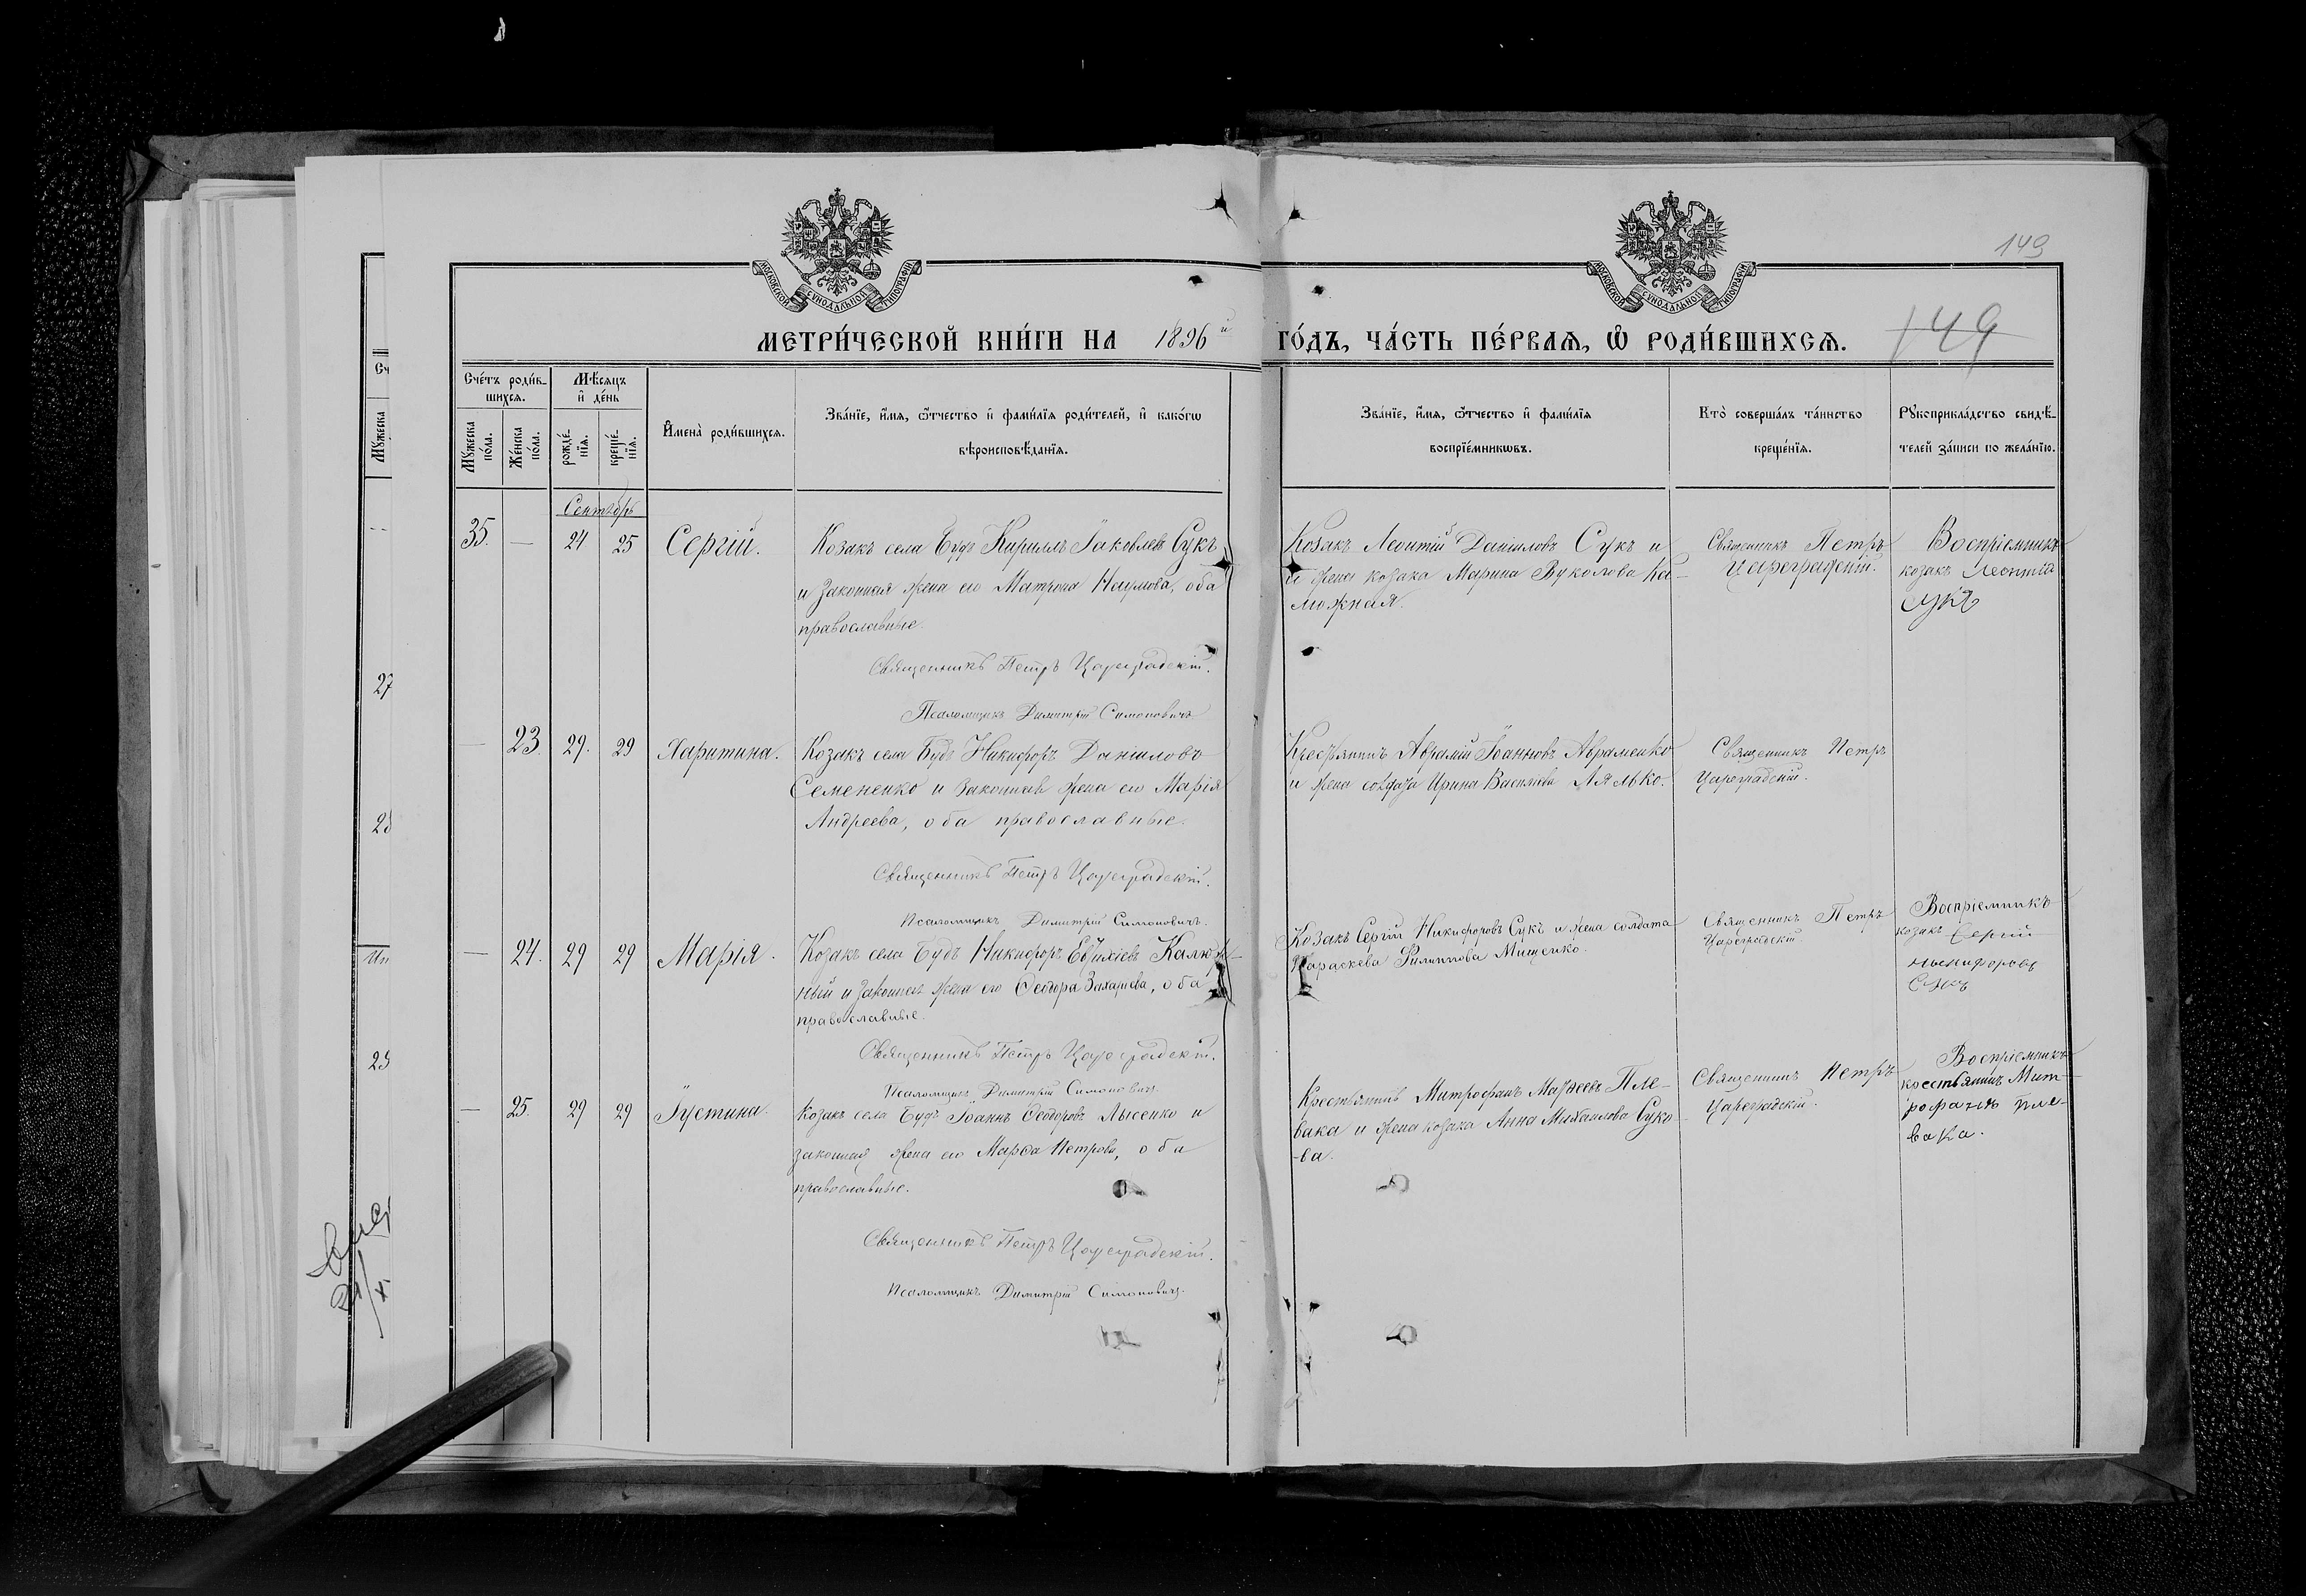 149
149
МОСКОВСКОЙ СѴНОДАЛЬНОЙ ТИПОГРАФІИ
МОСКОВСКОЙ СѴНОДАЛЬНОЙ ТИПОГРАФІИ
МЕТРИ́ЧЕСКОЙ КНИ́ГИ НА 1896й ГО́ДЪ, ЧА́СТЬ ПЕ́РВАѦ, Ѡ҆ РОДИ́ВШИХСѦ.
Сче́тъ роди́в-
шихсѧ.
Мꙋ́жеска по́ла.
Же́нска по́ла.
Мѣ́сѧцъ
и҆ де́нь
рожде́-
нїѧ.
креще́-
нїѧ.
И҆мена̀ роди́вшихсѧ.
Зва́нїе, и҆́мѧ, ѻ҆́тчество и҆ фами́лїѧ роди́телей, и҆ како́гѡ
вѣроисповѣ́данїѧ.
Зва́нїе, и҆́мѧ, ѻ҆́тчество и҆ фами́лїѧ
воспрїе́мникѡвъ.
Кто̀ соверша́лъ та́инство
креще́нїѧ.
Рꙋкоприкла́дство свидѣ́-
телей за́писи по жела́нїю.
Сентябрь
35. — 24 25 Сергій.
Козакъ села Будъ Кириллъ Іаковлевъ Сукъ
и законная жена его Матрона Наумова, оба
православные.
Священникъ Петръ Цареградскій.
Псаломщикъ Димитрій Симоновичъ.
Козакъ Леонтій Даніиловъ Сукъ и
и жена козака Марина Вуколова Ка-
люжная.
Священникъ Петръ
Цареградскій.
Воспріемникъ
козакъ Леонтій
Сукъ
— 23. 29. 29 Харитина.
Козакъ села Будъ Никифоръ Даниловъ
Семененко и законная жена его Марія
Андреева, оба православные.
Священникъ Петръ Цареградскій.
Псаломщикъ Димитрій Симоновичъ.
Крестьянинъ Аврамій Іоанновъ Авраменко
и жена солдата Ирина Васильева Лялько.
Священникъ Петръ
Цареградскій.
— 24. 29 29 Марія.
Козакъ села Будъ Никифоръ Евфиміевъ Калюж-
ный и законная жена его Ѳеодора Захаріева, оба
православные.
Священникъ Петръ Цареградскій.
Псаломщикъ Димитрій Симоновичъ.
Козакъ Сергій Никифоровъ Сукъ и жена солдата
Параскева Филиппова Мищенко.
Священникъ Петръ
Цареградскій.
Воспріемникъ
козакъ Сергій
Никифоровъ
Сукъ
— 25. 29 29 Іустина.
Козакъ села Будъ Іоаннъ Ѳеодоровъ Лысенко и
законная жена его Марѳа Петрова, оба
православные.
Священникъ Петръ Цареградскій.
Псаломщикъ Димитрій Симоновичъ.
Крестьянинъ Митрофанъ Матѳеевъ Пле-
вака и жена козака Анна Михаилова Суко-
-ва.
Священникъ Петръ
Цареградскій.
Воспріемникъ
крестьянинъ Мит-
рофанъ Пле-
вака.
Мꙋ́жеска
27